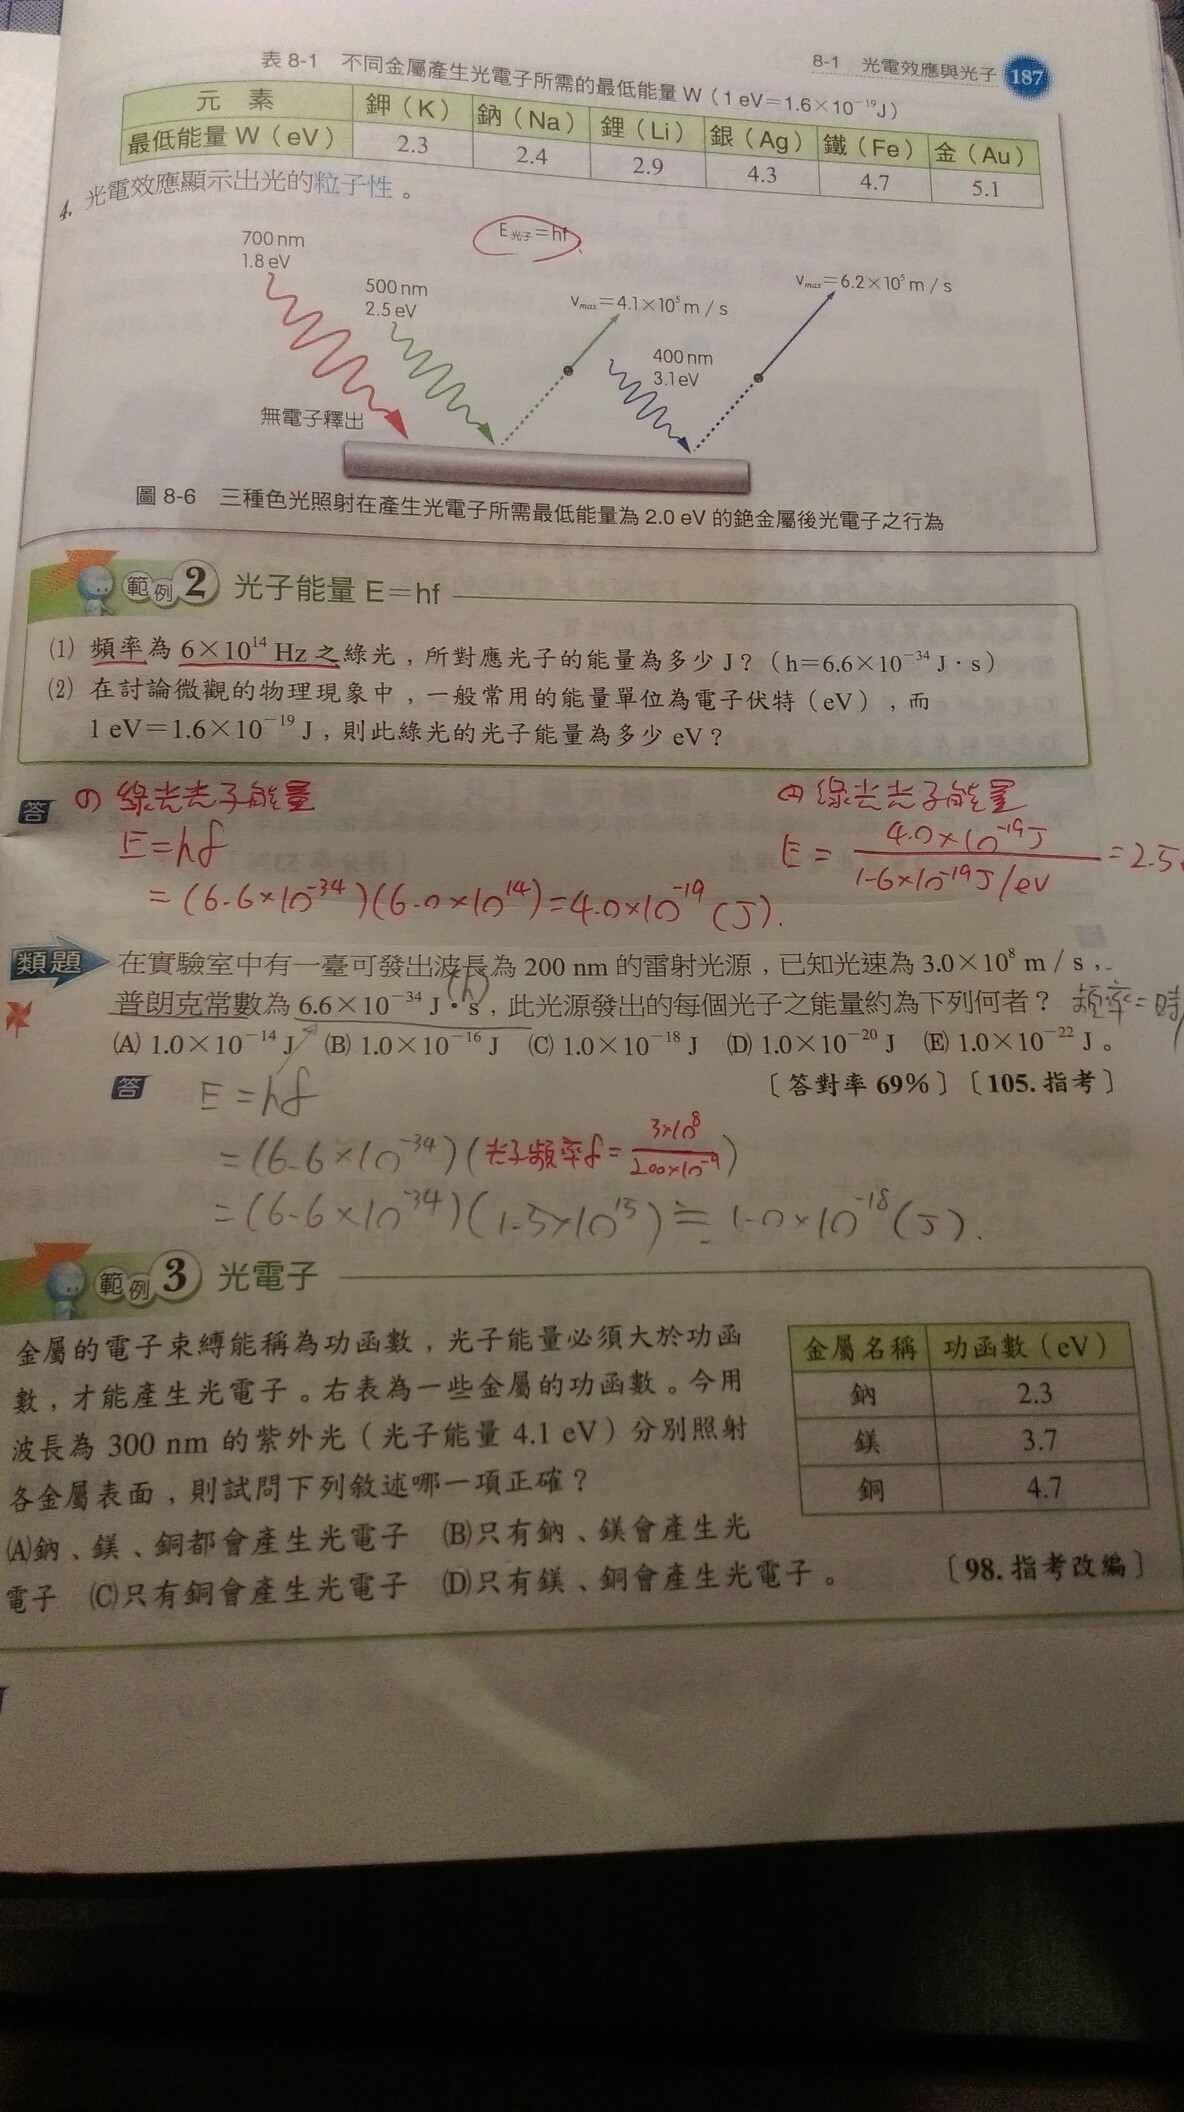 8-1 光電效應與光子 187
表 8-1 不同金屬產生光電子所需的最低能量 W（1 eV＝1.6×10⁻¹⁹J）
元 素 鉀（K） 鈉（Na） 鋰（Li） 銀（Ag） 鐵（Fe） 金（Au）
最低能量 W（eV） 2.3 2.4 2.9 4.3 4.7 5.1
4. 光電效應顯示出光的粒子性。
E光子＝hf
700 nm
1.8 eV
500 nm
2.5 eV
vmax＝4.1×10⁵ m / s
vmax＝6.2×10⁵ m / s
400 nm
3.1 eV
無電子釋出
圖 8-6 三種色光照射在產生光電子所需最低能量為 2.0 eV 的銫金屬後光電子之行為
範例 2 光子能量 E＝hf
⑴ 頻率為 6×10¹⁴ Hz 之綠光，所對應光子的能量為多少 J？（h＝6.6×10⁻³⁴ J・s）
⑵ 在討論微觀的物理現象中，一般常用的能量單位為電子伏特（eV），而
1 eV＝1.6×10⁻¹⁹ J，則此綠光的光子能量為多少 eV？
答 (1) 綠光光子能量
E=hf
=(6.6×10⁻³⁴)(6.0×10¹⁴)=4.0×10⁻¹⁹(J).
綠光光子能量
E = 4.0×10⁻¹⁹J / 1.6×10⁻¹⁹J/eV =2.5
類題 在實驗室中有一臺可發出波長為 200 nm 的雷射光源，已知光速為 3.0×10⁸ m / s，
(h)
普朗克常數為 6.6×10⁻³⁴ J・s，此光源發出的每個光子之能量約為下列何者？ 頻率=時
(A) 1.0×10⁻¹⁴ J (B) 1.0×10⁻¹⁶ J (C) 1.0×10⁻¹⁸ J (D) 1.0×10⁻²⁰ J (E) 1.0×10⁻²² J。
〔答對率 69%〕〔105. 指考〕
答 E=hf
=(6.6×10⁻³⁴)(光子頻率f=3×10⁸/200×10⁻⁹)
=(6.6×10⁻³⁴)(1.5×10¹⁵)≒1.0×10⁻¹⁸(J).
範例 3 光電子
金屬的電子束縛能稱為功函數，光子能量必須大於功函
數，才能產生光電子。右表為一些金屬的功函數。今用
波長為 300 nm 的紫外光（光子能量 4.1 eV）分別照射
各金屬表面，則試問下列敘述哪一項正確？
(A)鈉、鎂、銅都會產生光電子 (B)只有鈉、鎂會產生光
電子 (C)只有銅會產生光電子 (D)只有鎂、銅會產生光電子。
〔98. 指考改編〕
金屬名稱 功函數（eV）
鈉 2.3
鎂 3.7
銅 4.7